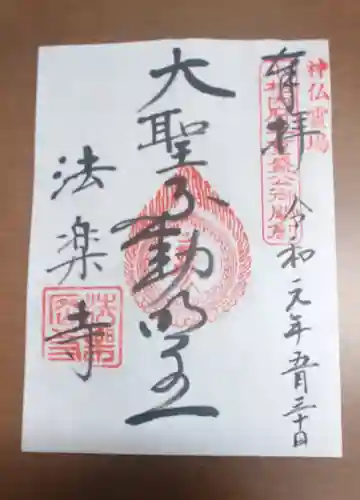 神仏霊場
奉拝
令和元年五月三十日
大聖不動明王
法楽寺